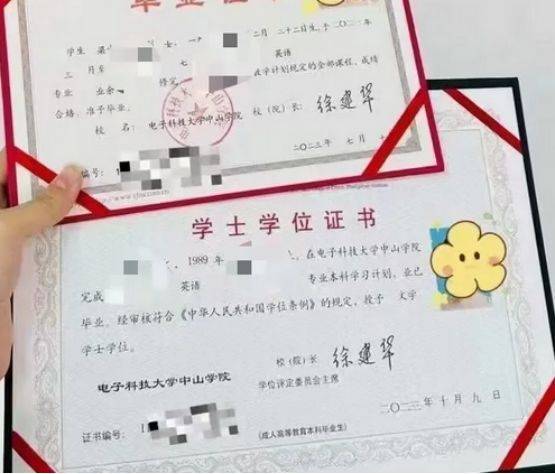 毕业证书
学生 梁 女,一 二月 二十二日生,于二〇二一年
三 月至 七 英语
专业 业余 修完 在学计划规定的全部课程,成绩
合格,准予毕业。
校 名:电子科技大学中山学院 校(院)长:徐建华
编号: 二〇二三年 七月
学士学位证书
,1989年 ,在电子科技大学中山学院
完成 英语 专业本科学习计划,业已
毕业,经审核符合《中华人民共和国学位条例》的规定,授予 文学
学士学位。
校(院)长 徐建华
电子科技大学中山学院 学位评定委员会主席
证书编号: 二〇二三年十月九日
(成人高等教育本科毕业生)